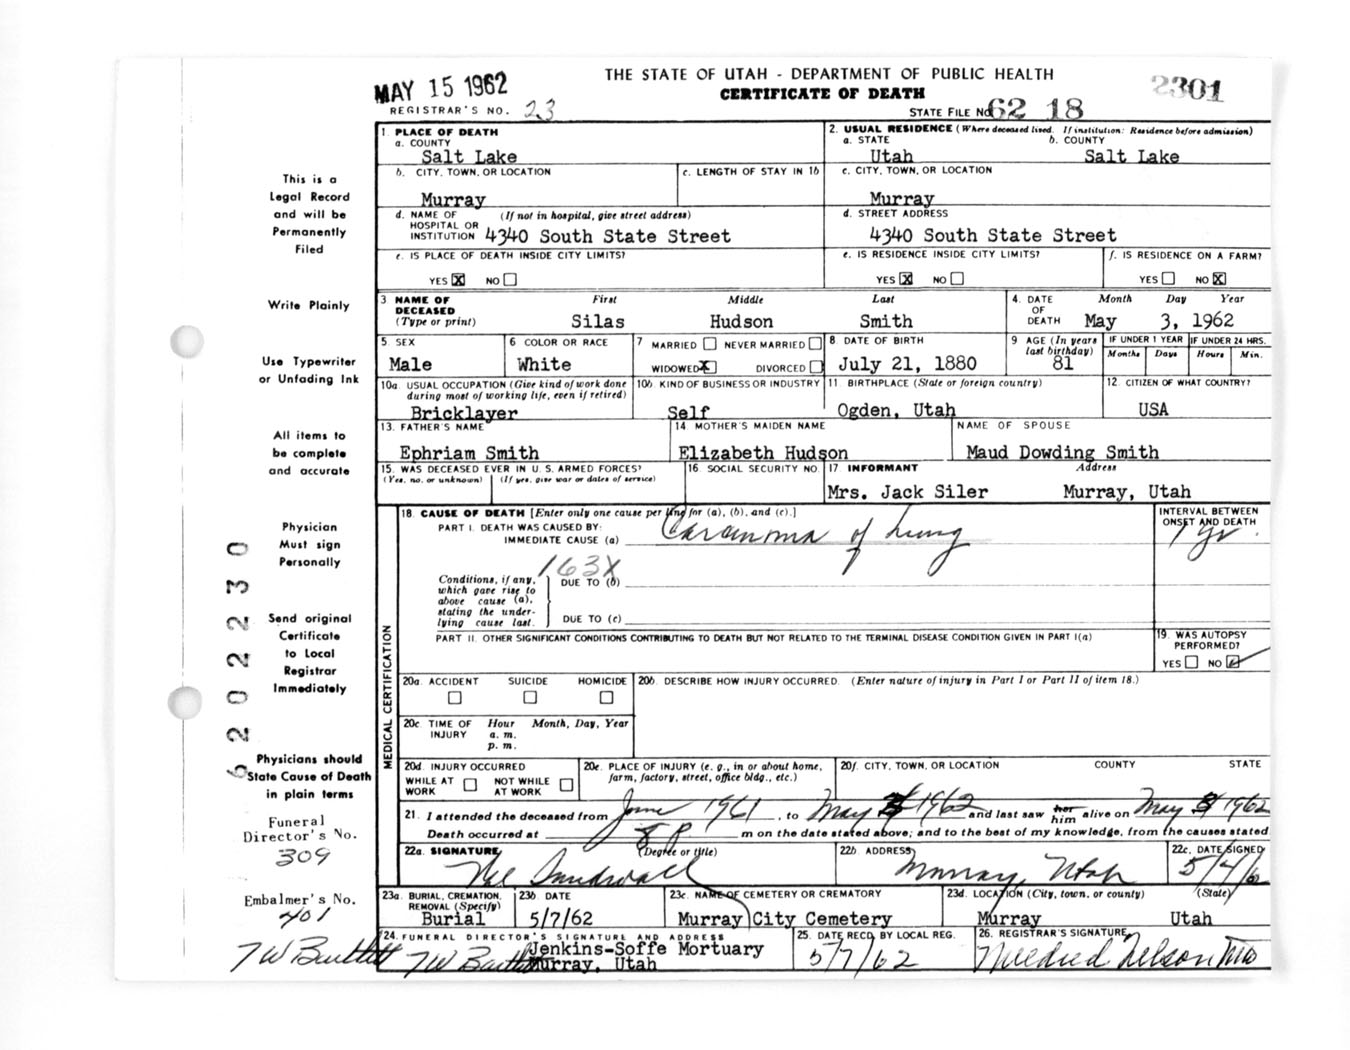 MAY 15 1962
THE STATE OF UTAH - DEPARTMENT OF PUBLIC HEALTH
2301
CERTIFICATE OF DEATH
REGISTRAR'S NO. 23
STATE FILE NO. 62 18
This is a
Legal Record
and will be
Permanently
Filed
Write Plainly
Use Typewriter
or Unfading Ink
All items to
be complete
and accurate
Physician
Must sign
Personally
Send original
Certificate
to Local
Registrar
Immediately
Physicians should
State Cause of Death
in plain terms
Funeral
Director's No.
309
Embalmer's No.
401
TW Bartlett
62022230
1. PLACE OF DEATH
a. COUNTY
Salt Lake
2. USUAL RESIDENCE (Where deceased lived. If institution: Residence before admission)
a. STATE b. COUNTY
Utah Salt Lake
b. CITY, TOWN, OR LOCATION
Murray
c. LENGTH OF STAY IN 1b
c. CITY, TOWN, OR LOCATION
Murray
d. NAME OF (If not in hospital, give street address)
HOSPITAL OR
INSTITUTION 4340 South State Street
d. STREET ADDRESS
4340 South State Street
e. IS PLACE OF DEATH INSIDE CITY LIMITS?
YES X NO
e. IS RESIDENCE INSIDE CITY LIMITS?
YES X NO
f. IS RESIDENCE ON A FARM?
YES NO X
3. NAME OF First Middle Last
DECEASED
(Type or print) Silas Hudson Smith
4. DATE Month Day Year
OF
DEATH May 3, 1962
5. SEX
Male
6 COLOR OR RACE
White
7 MARRIED NEVER MARRIED
WIDOWED X DIVORCED
8. DATE OF BIRTH
July 21, 1880
9 AGE (In years
last birthday)
81
IF UNDER 1 YEAR IF UNDER 24 HRS.
Months Days Hours Min.
10a. USUAL OCCUPATION (Give kind of work done
during most of working life, even if retired)
Bricklayer
10b. KIND OF BUSINESS OR INDUSTRY
Self
11. BIRTHPLACE (State or foreign country)
Ogden, Utah
12. CITIZEN OF WHAT COUNTRY?
USA
13. FATHER'S NAME
Ephriam Smith
14. MOTHER'S MAIDEN NAME
Elizabeth Hudson
NAME OF SPOUSE
Maud Dowding Smith
15. WAS DECEASED EVER IN U. S. ARMED FORCES?
(Yes, no, or unknown) (If yes, give war or dates of service)
16. SOCIAL SECURITY NO.
17. INFORMANT Address
Mrs. Jack Siler Murray, Utah
MEDICAL CERTIFICATION
18. CAUSE OF DEATH [Enter only one cause per line for (a), (b), and (c).]
PART I. DEATH WAS CAUSED BY:
IMMEDIATE CAUSE (a) Carcinoma of Lung
INTERVAL BETWEEN
ONSET AND DEATH
1 yr.
163X
Conditions, if any,
which gave rise to
above cause (a),
stating the under-
lying cause last.
DUE TO (b)
DUE TO (c)
PART II. OTHER SIGNIFICANT CONDITIONS CONTRIBUTING TO DEATH BUT NOT RELATED TO THE TERMINAL DISEASE CONDITION GIVEN IN PART I(a)
19. WAS AUTOPSY
PERFORMED?
YES NO
20a. ACCIDENT SUICIDE HOMICIDE
20b. DESCRIBE HOW INJURY OCCURRED. (Enter nature of injury in Part I or Part II of item 18.)
20c. TIME OF Hour Month, Day, Year
INJURY a. m.
p. m.
20d. INJURY OCCURRED
WHILE AT NOT WHILE
WORK AT WORK
20e. PLACE OF INJURY (e. g., in or about home,
farm, factory, street, office bldg., etc.)
20f. CITY, TOWN, OR LOCATION COUNTY STATE
21. I attended the deceased from June 1961, to May 1962 and last saw her him alive on May 1962
Death occurred at 8 P m on the date stated above; and to the best of my knowledge, from the causes stated
22a. SIGNATURE (Degree or title)
22b. ADDRESS
Murray, Utah
22c. DATE SIGNED
5/4/6
23a. BURIAL, CREMATION,
REMOVAL (Specify)
Burial
23b. DATE
5/7/62
23c. NAME OF CEMETERY OR CREMATORY
Murray City Cemetery
23d. LOCATION (City, town, or county) (State)
Murray Utah
24. FUNERAL DIRECTOR'S SIGNATURE AND ADDRESS
TW Bartlett Jenkins-Soffe Mortuary
Murray, Utah
25. DATE RECD. BY LOCAL REG.
5/7/62
26. REGISTRAR'S SIGNATURE
Mildred Nelson